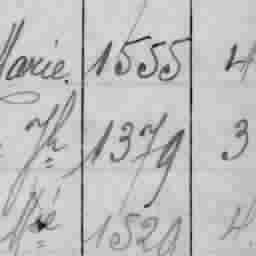 Marie. 1555 4
Jh 1379 3
Mé 1520 4.